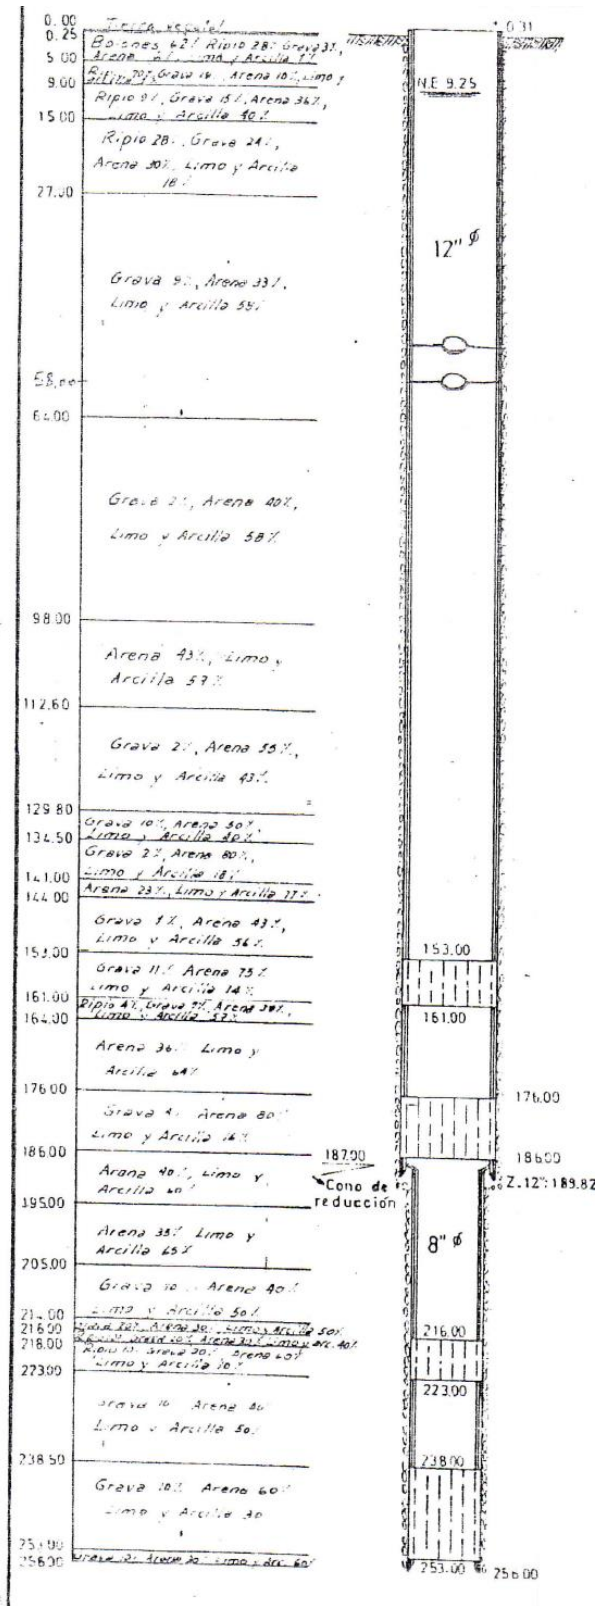 0.00 Tierra vegetal
0.25
Bolones 62% Ripio 28% Grava 3%,
Arena Limo y Arcilla
5.00
Ripio 70% Grava Arena 10%, Limo y
9.00
Ripio 9%, Grava 15%, Arena 36%,
Limo y Arcilla 40%
15.00
Ripio 28%, Grava 24%,
Arena 30%, Limo y Arcilla
18%
27.00
Grava 9%, Arena 33%,
Limo y Arcilla 58%
58.00
64.00
Grava 2%, Arena 40%,
Limo y Arcilla 58%
98.00
Arena 43%, Limo y
Arcilla 57%
112.60
Grava 2%, Arena 55%,
Limo y Arcilla 43%
129.80
Grava 10%, Arena 50%
Limo y Arcilla 40%
134.50
Grava 2%, Arena 80%,
Limo y Arcilla 18%
141.00
Arena 23%, Limo y Arcilla 77%
144.00
Grava 1%, Arena 43%,
Limo y Arcilla 56%
153.00
Grava 11% Arena 75%
Limo y Arcilla 14%
161.00
Ripio 4%, Grava Arena
Limo y Arcilla
164.00
Arena 36% Limo y
Arcilla 64%
176.00
Grava 4% Arena 80%
Limo y Arcilla 16%
186.00
Arena 40%, Limo y
Arcilla 60%
195.00
Arena 35% Limo y
Arcilla 65%
205.00
Grava 10 Arena 40%
Limo y Arcilla 50%
214.00
Arena Limo y Arcilla 50%
216.00
Grava 10%, Arena Limo y Arc. 40%
218.00
Ripio Grava 20% Arena 60%
Limo y Arcilla 10%
223.00
Grava 10 Arena 40
Limo y Arcilla 50%
238.50
Grava 10% Arena 60%
Limo y Arcilla 30
253.00
256.00 Grava Arena Limo y Arc. 60%
0.31
N.E 9.25
12" ø
153.00
161.00
176.00
187.00
186.00
Cono de
reducción
Z.12": 189.82
8" ø
216.00
223.00
238.00
253.00
256.00